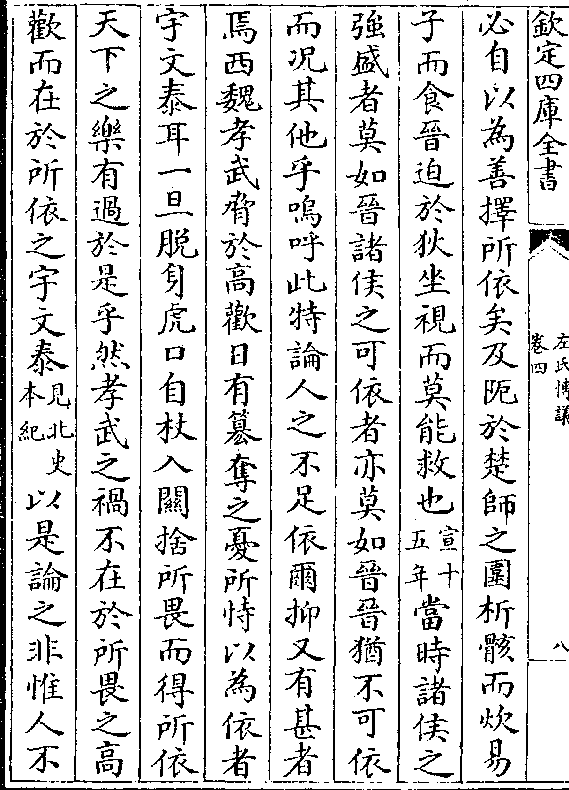 欽定四庫全書
左氏博議
卷四
八
必自以為善擇所依矣及阨於楚師之圍析骸而炊易
子而食晉迫於狄坐視而莫能救也宣十五年當時諸侯之
強盛者莫如晉諸侯之可依者亦莫如晉晉猶不可依
而况其他乎嗚呼此特論人之不足依爾抑又有甚者
焉西魏孝武脅於高歡日有簒奪之憂所恃以為依者
宇文泰耳一旦脱身虎口自杖入關捨所畏而得所依
天下之樂有過於是乎然孝武之禍不在於所畏之高
歡而在於所依之宇文泰見北史本紀以是論之非惟人不